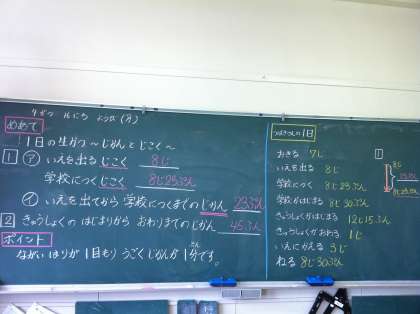 4がつ 16にち ようび (月)
めあて
1日の生かつ ～じかんとじこく～
1 ㋐ いえを出るじこく 8じ
学校につくじこく 8じ23ぷん
㋑ いえを出てから学校につくまでのじかん 23ぷん
2 きゅうしょくのはじまりから おわりまでのじかん 45ふん
ポイント
ながいはりが 1目もり うごくじかんが 1分です。
の1日
おきる 7じ
いえを出る 8じ
学校につく 8じ23ぷん
学校がはじまる 8じ30ぷん
きゅうしょくがはじまる 12じ15ふん
きゅうしょくがおわる 1じ
いえにかえる 3じ
ねる 8じ30ぷん
1
8じ
23ぷん
8じ23ぷん